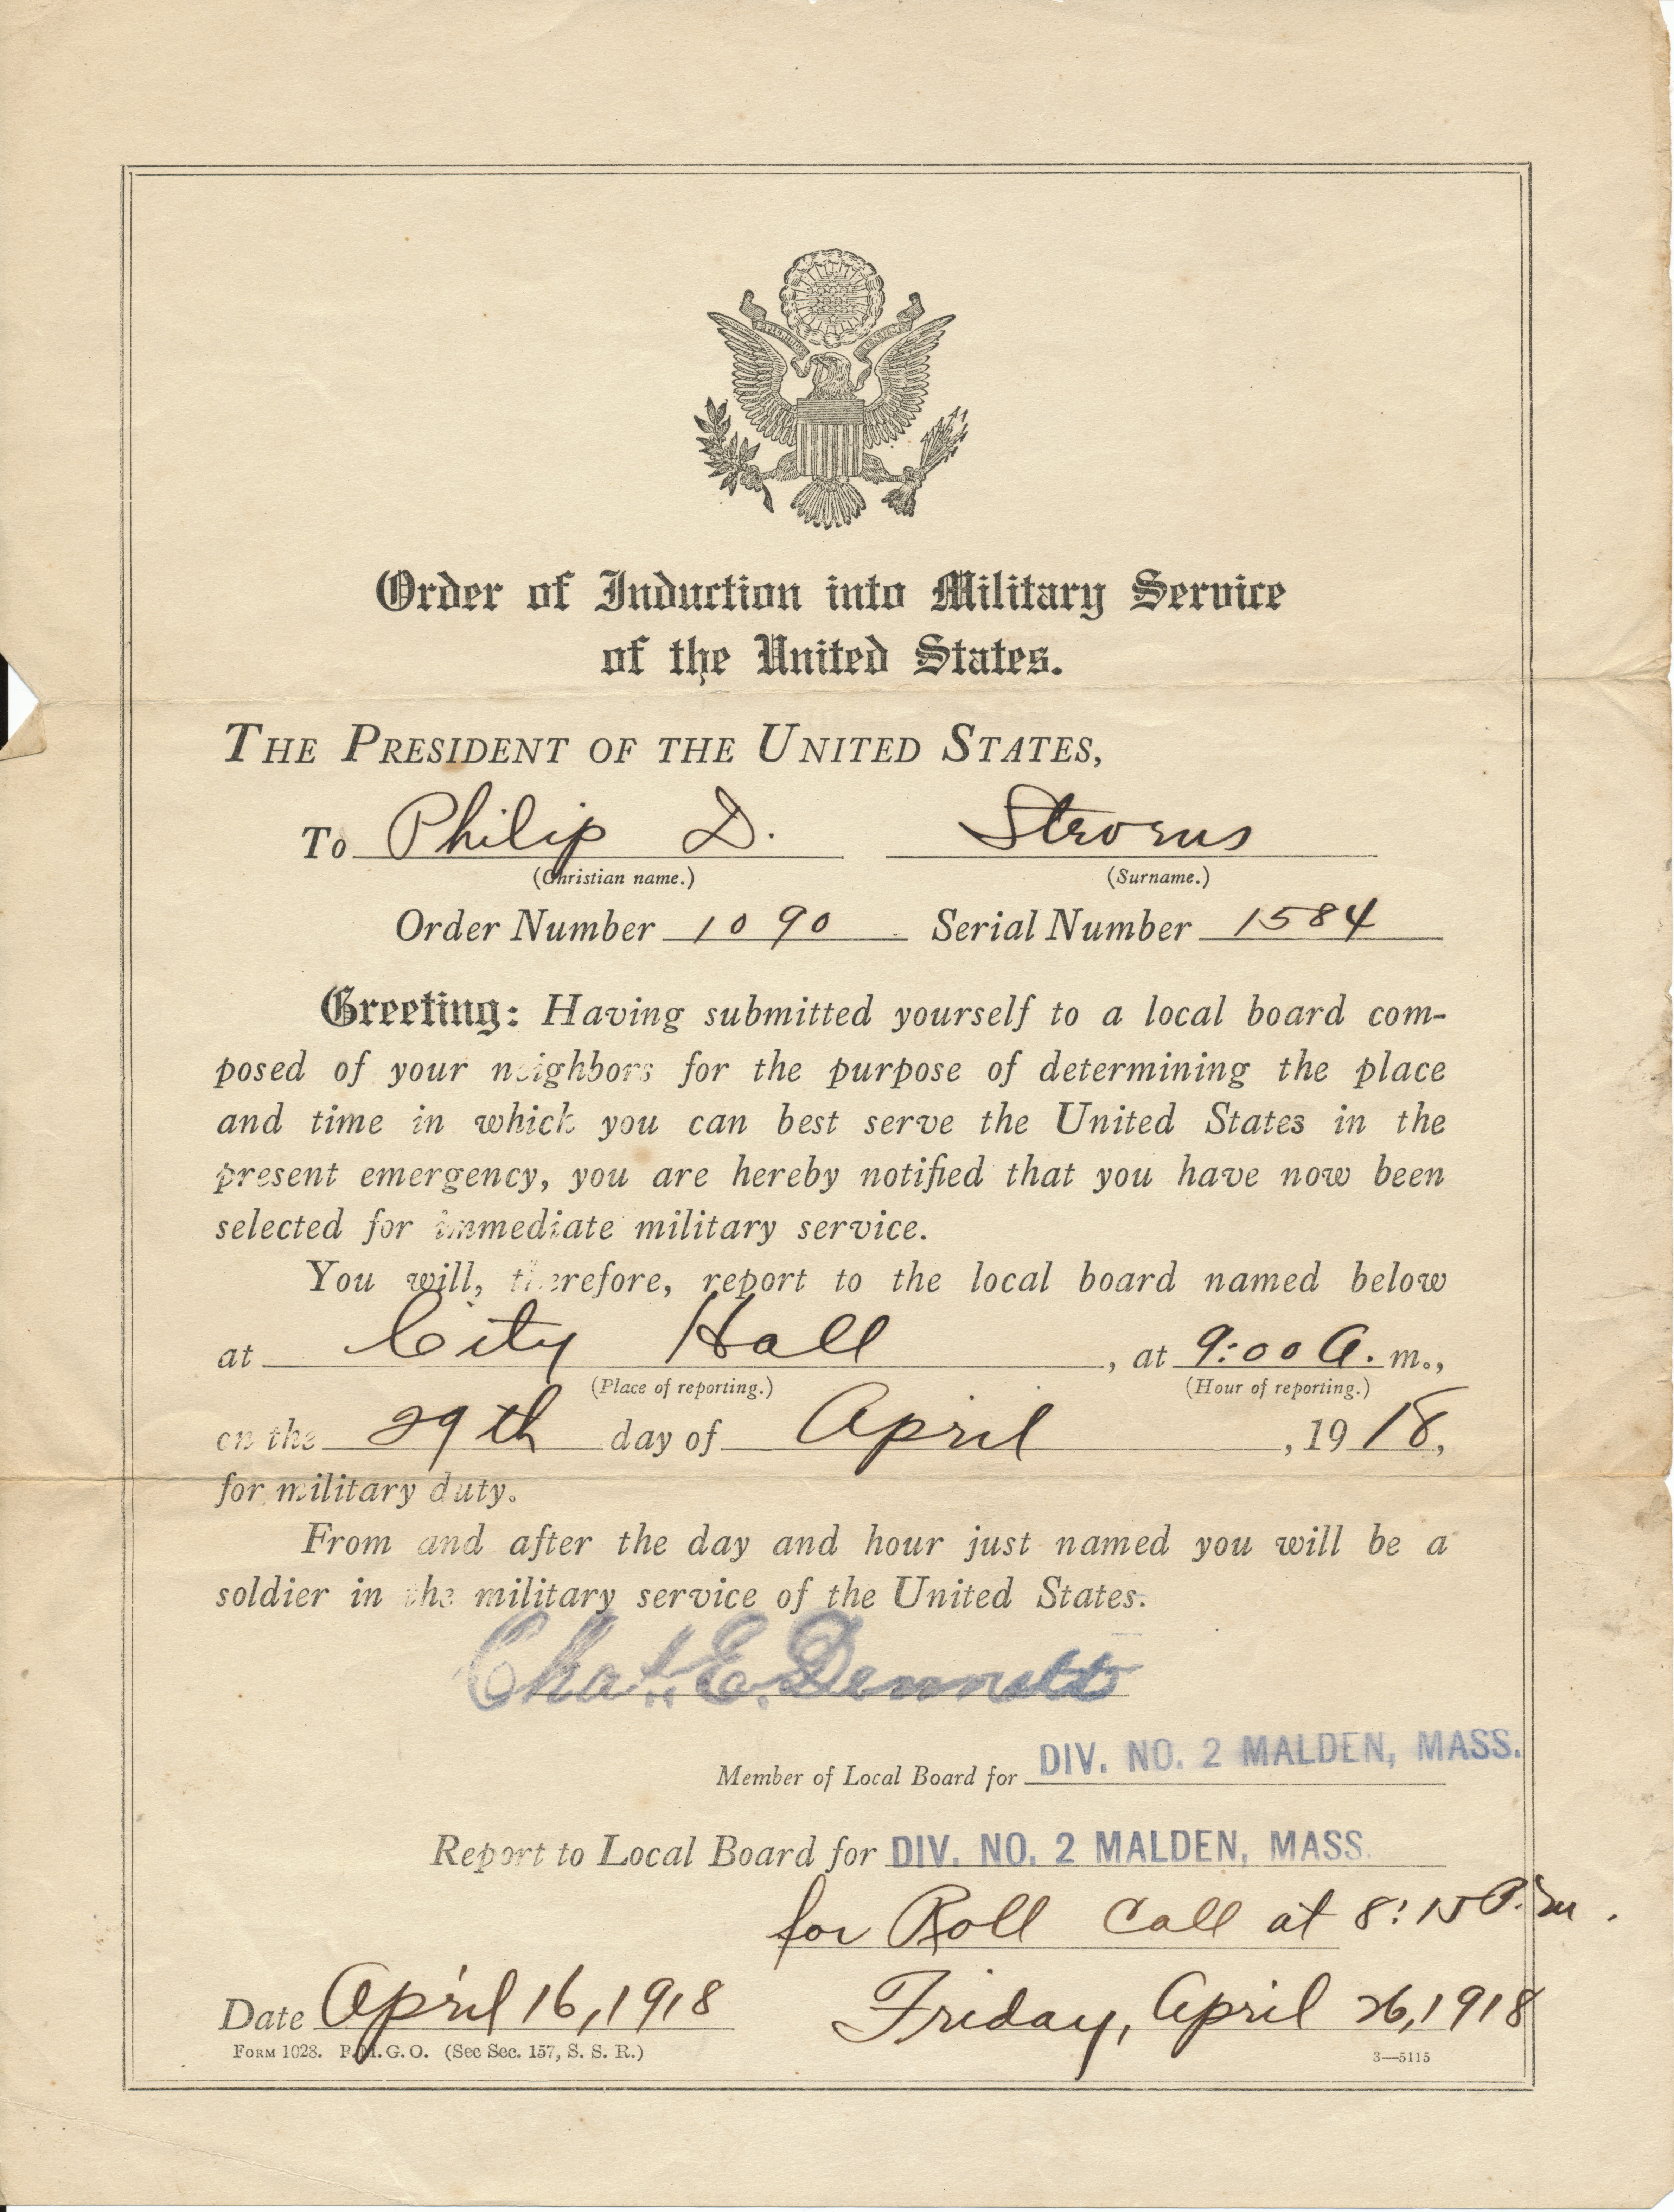 Order of Induction into Military Service
of the United States.
THE PRESIDENT OF THE UNITED STATES,
To Philip D. Strorus
(Christian name.) (Surname.)
Order Number 1090 Serial Number 1584
Greeting: Having submitted yourself to a local board com-
posed of your neighbors for the purpose of determining the place
and time in which you can best serve the United States in the
present emergency, you are hereby notified that you have now been
selected for immediate military service.
You will, therefore, report to the local board named below
at City Hall, at 9:00 A. m.,
(Place of reporting.) (Hour of reporting.)
on the 29th day of April, 1918,
for military duty.
From and after the day and hour just named you will be a
soldier in the military service of the United States.
Chas. E. Dennett
Member of Local Board for DIV. NO. 2 MALDEN, MASS.
Report to Local Board for DIV. NO. 2 MALDEN, MASS.
for Roll Call at 8:15 P.m.
Date April 16, 1918 Friday, April 26, 1918
FORM 1028. P.M.G.O. (See Sec. 157, S. S. R.) 3—5115